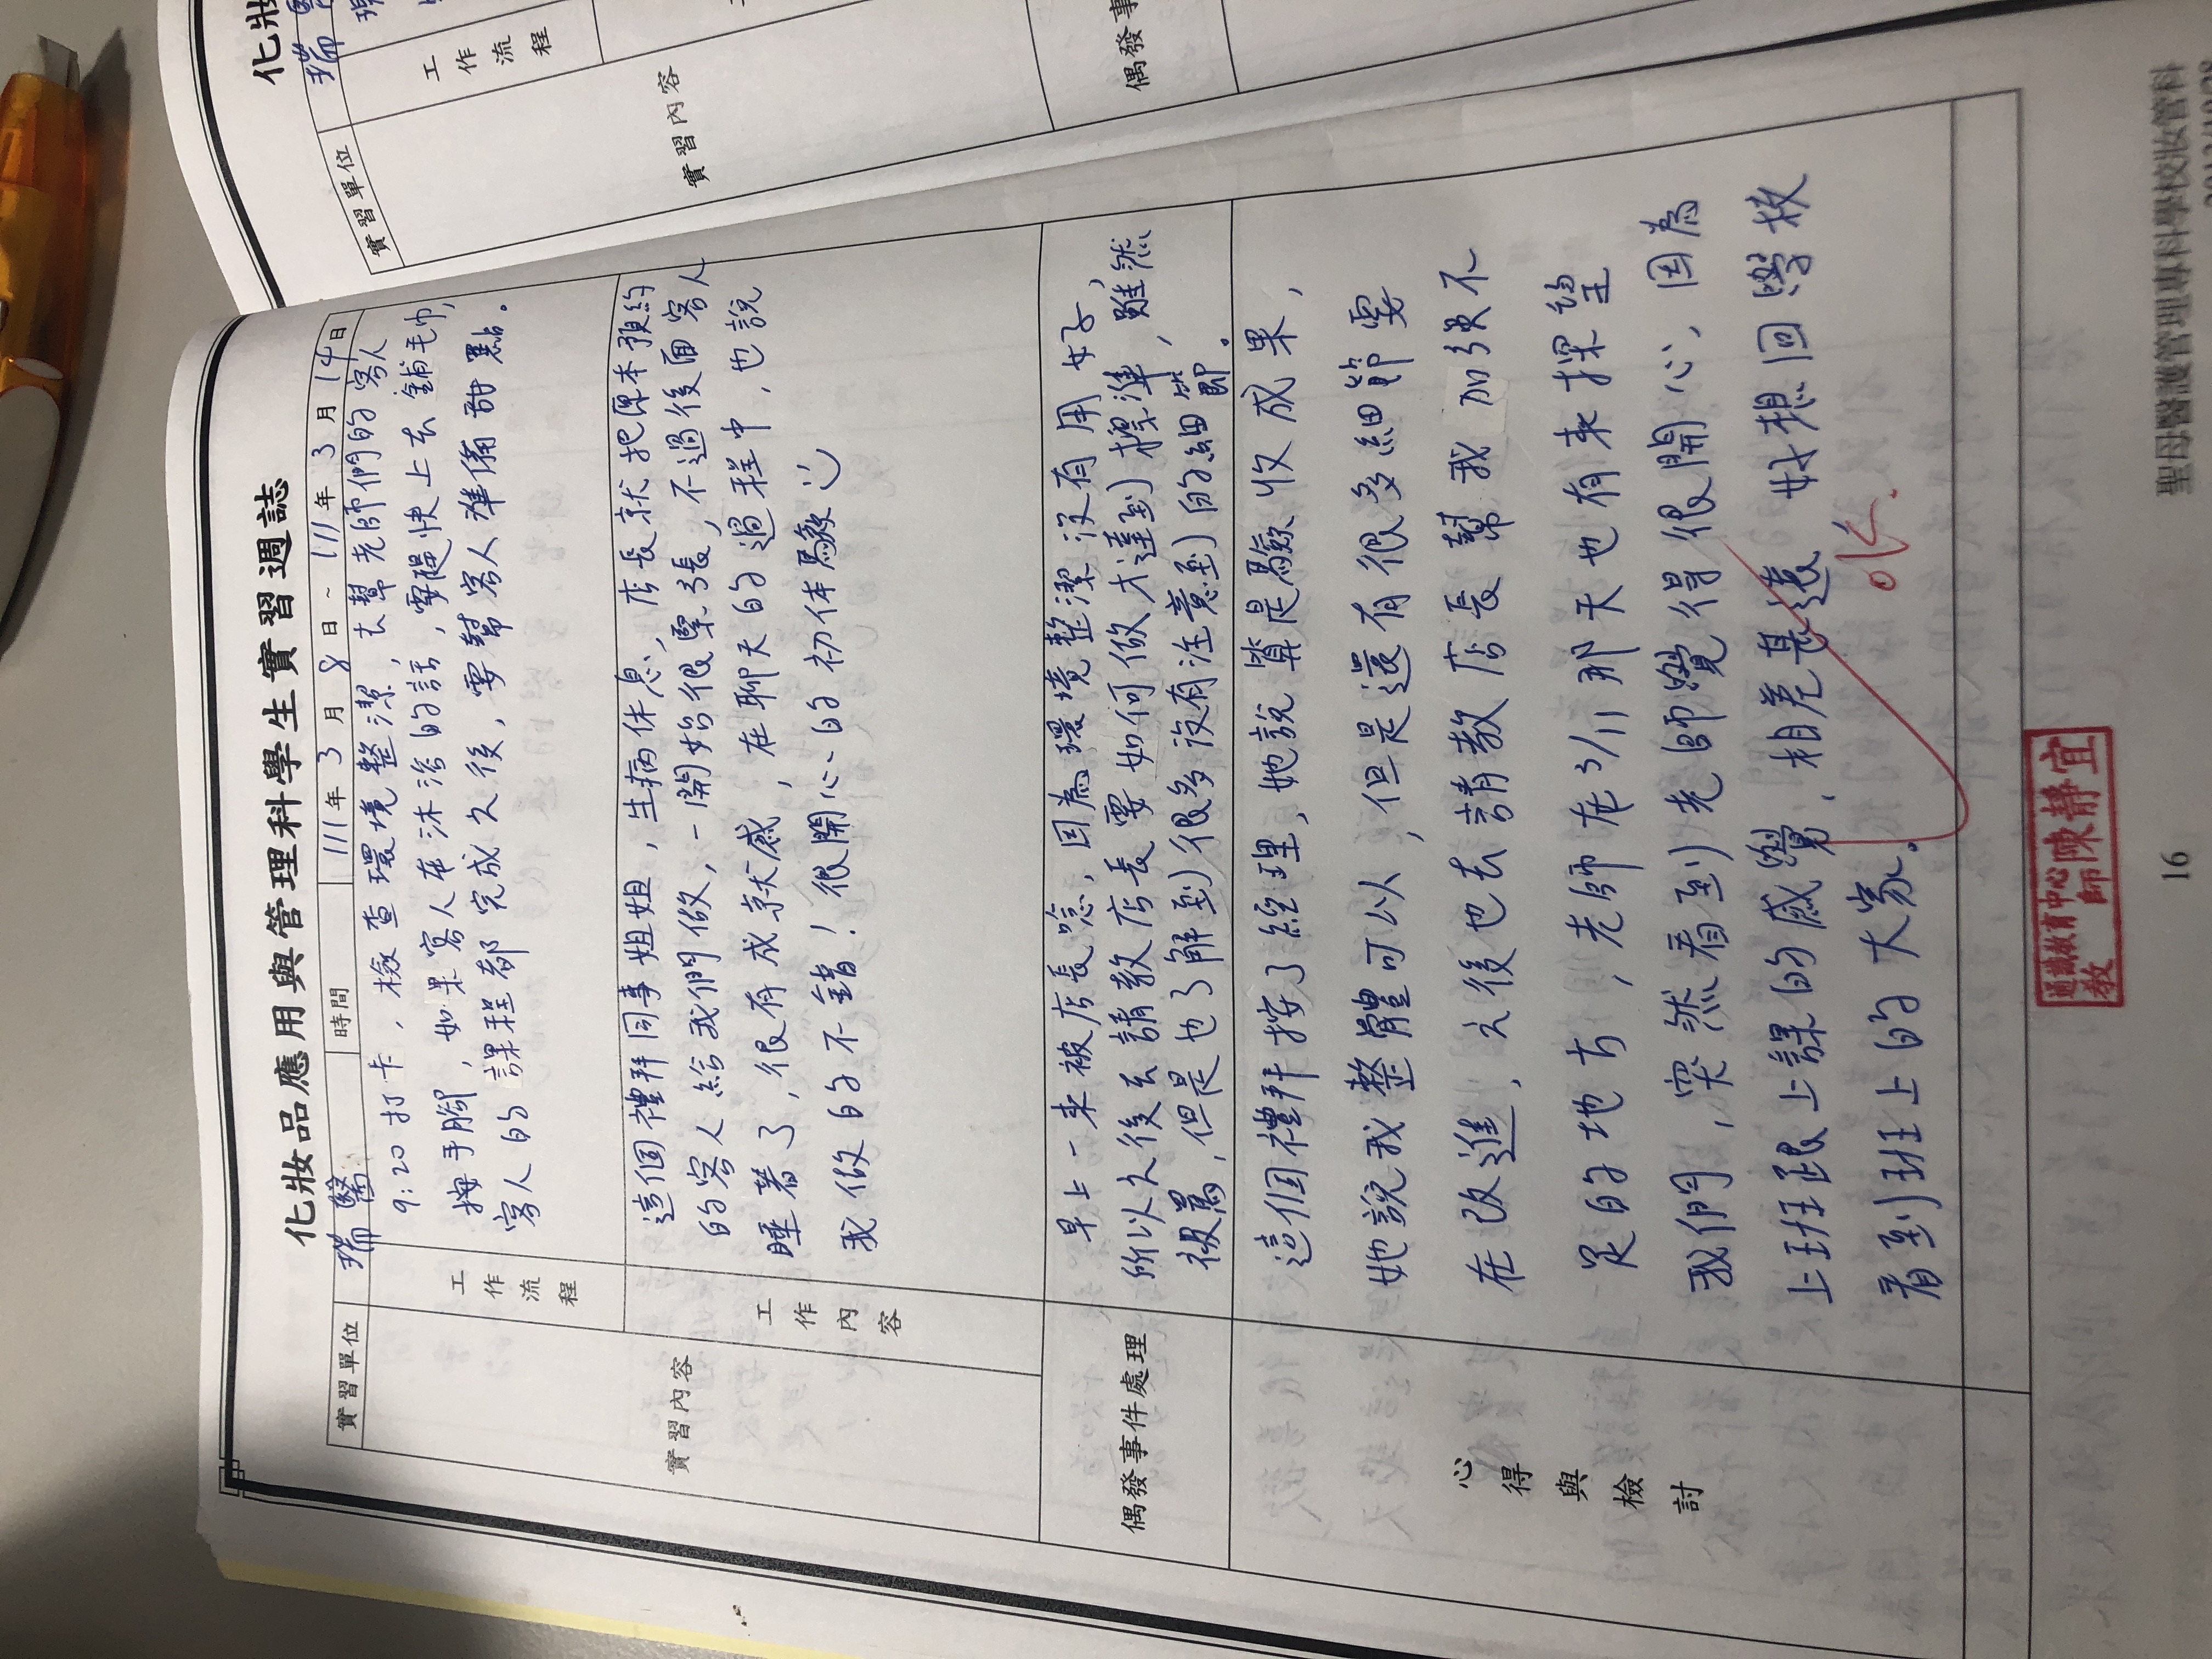 化妝品應用與管理科學生實習週誌
實習單位 瑞醫 時間 111年3月8日~111年3月14日
實習內容
工作流程
9:20打卡,檢查環境整潔,去幫老師們的客人
按手腳,如果客人在沐浴的話,要趕快上去鋪毛巾,
客人的課程都完成久後,要幫客人準備甜點。
工作內容
這個禮拜同事姐姐,生病休息,店長就把原本預約
的客人給我們做,一開始很緊張,不過後面客人
睡著了,很有成就感,在聊天的過程中,也說
我做的不錯!很開心的初体驗
偶發事件處理
早上一來被店長唸,因為環境整潔沒有用好,
所以久後去請教店長要如何做才達到標準,雖然
被罵,但是也了解到很多沒有注意到的細節。
心得與檢討
這個禮拜按了經理,她說算是驗收成果,
她說我整體可以,但是還有很多細節要
在改進,久後也去請教店長幫我加強不
足的地方,老師在3/11那天也有來探望
我們,突然看到老師覺得很開心,因為
上班跟上課的感覺,相差甚遠 好想回學校
看到班上的大家。
ok.
通識教育中心
教師
陳靜宜
16
聖母醫護管理專科學校妝管科
化妝
實習單位 瑞
工作流程
實習內容
偶發事